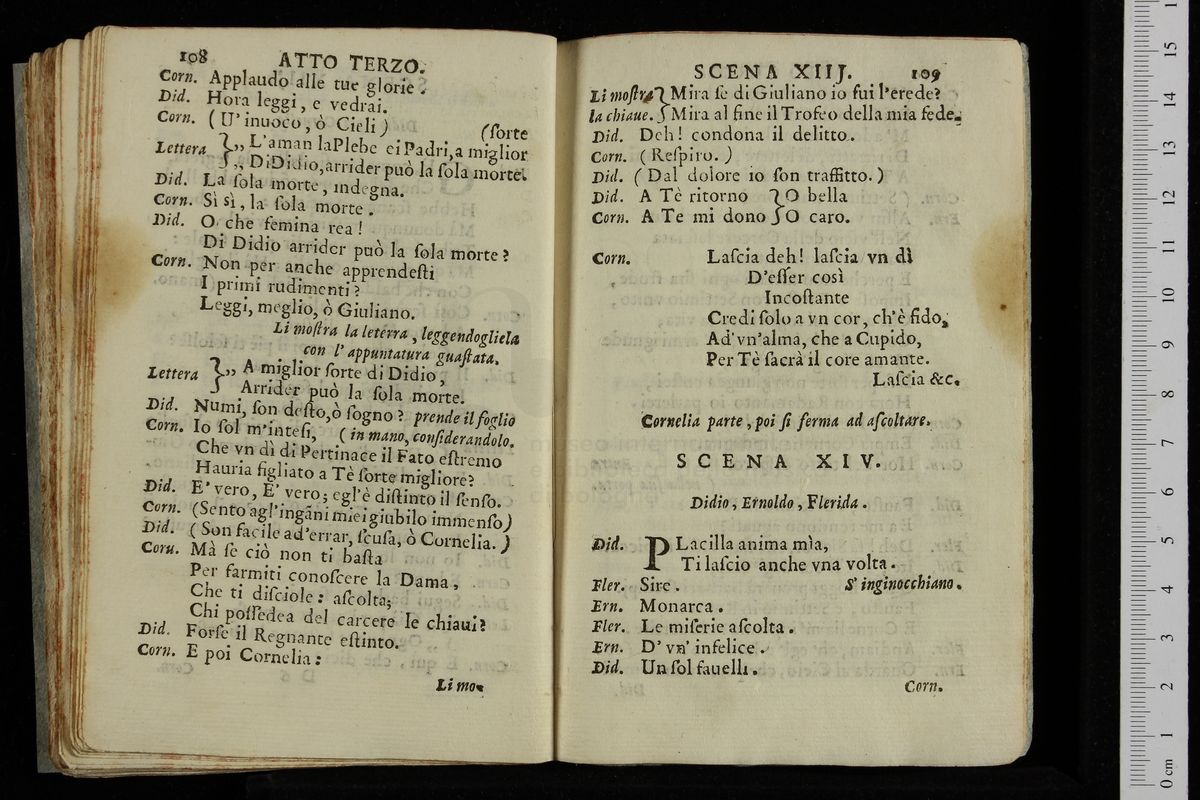 108 ATTO TERZO.
Corn. Applaudo alle tue glorie.
Did. Hora leggi, e vedrai.
Corn. (U' inuoco, ò Cieli) (ſorte
Lettera „ L'aman laPlebe ei Padri, a miglior
„ DiDidio, arrider può la ſola morte.
Did. La ſola morte, indegna.
Corn. Sì sì, la ſola morte.
Did. O che femina rea!
Di Didio arrider può la ſola morte?
Corn. Non per anche apprendeſti
I primi rudimenti?
Leggi, meglio, ò Giuliano.
Li moſtra la leterra, leggendogliela
con l' appuntatura guaſtata.
Lettera „ A miglior ſorte di Didio,
Arrider può la ſola morte.
Did. Numi, ſon deſto, ò ſogno? prende il foglio
Corn. Io ſol m'inteſi, (in mano, conſiderandolo.
Che vn dì di Pertinace il Fato eſtremo
Hauria figliato a Tè ſorte migliore?
Did. E' vero, E' vero; egl'è diſtinto il ſenſo.
Corn. (Sento agl'ingãni miei giubilo immenſo)
Did. (Son facile ad'errar, ſcuſa, ò Cornelia.)
Coru. Mà ſe ciò non ti baſta
Per farmiti conoſcere la Dama,
Che ti diſciole: aſcolta;
Chi poſſedea del carcere le chiaui?
Did. Forſe il Regnante eſtinto.
Corn. E poi Cornelia:
Li mo-
SCENA XIIJ. 109
Li moſtra Mira ſe di Giuliano io fui l'erede?
la chiaue. Mira al fine il Trofeo della mia fede.
Did. Deh! condona il delitto.
Corn. (Reſpiro.)
Did. (Dal dolore io ſon traffitto.)
Did. A Tè ritorno O bella
Corn. A Te mi dono O caro.
Corn. Laſcia deh! laſcia vn dì
D'eſſer così
Incoſtante
Credi ſolo a vn cor, ch'è fido,
Ad'vn'alma, che a Cupido,
Per Tè ſacrà il core amante.
Laſcia &c.
Cornelia parte, poi ſi ferma ad aſcoltare.
SCENA XIV.
Didio, Ernoldo, Flerida.
Did. PLacilla anima mìa,
Ti laſcio anche vna volta.
Fler. Sire. S' inginocchiano.
Ern. Monarca.
Fler. Le miſerie aſcolta.
Ern. D' vn' infelice.
Did. Un ſol fauelli.
Corn.